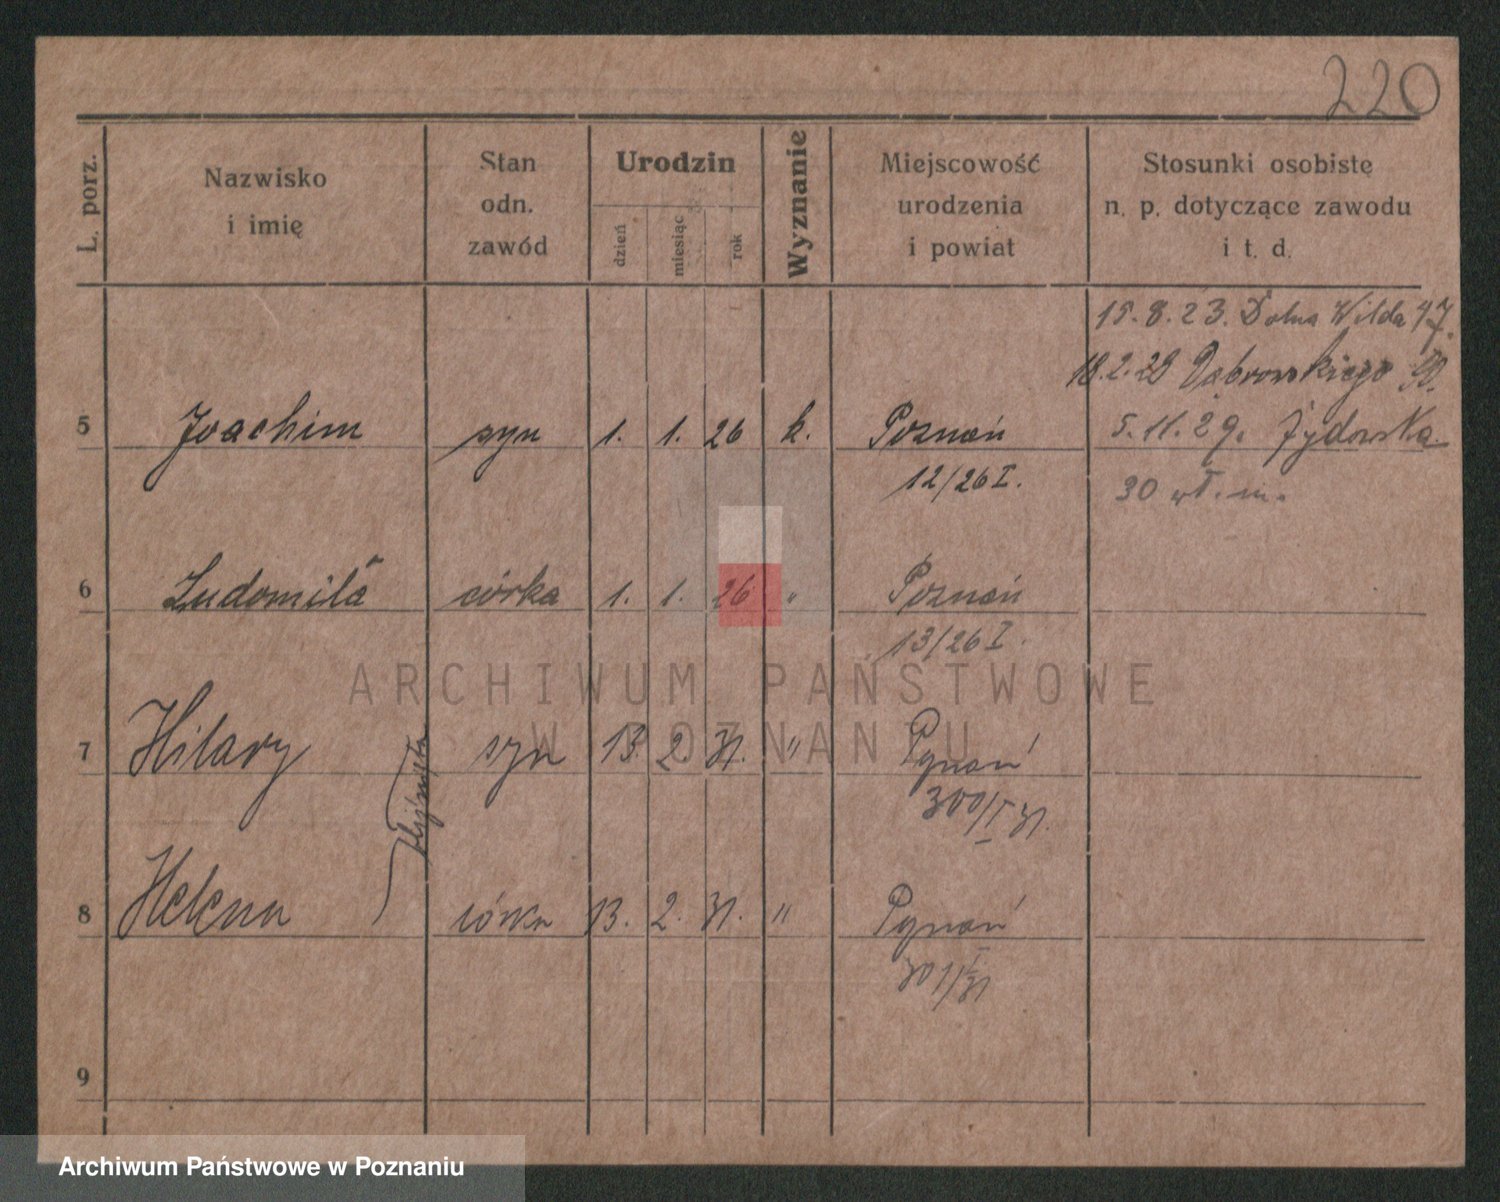 220
L. porz.
Nazwisko
i imię
Stan
odn.
zawód
Urodzin
dzień
miesiąc
rok
Wyznanie
Miejscowość
urodzenia
i powiat
Stosunki osobistę
n. p. dotyczące zawodu
i t. d.
15.8.23. Dolna Wilda 47.
18.2.29 Dąbrowskiego 90.
5 Joachim syn 1. 1. 26 k. Poznań 5.11.29. Żydowska
12/26 I. 30 wł. m.
6 Ludomiła córka 1. 1. 26 " Poznań
13/26 I.
ARCHIWUM PAŃSTWOWE
W POZNANIU
7 Hilary syn 13. 2 31. " Poznań
300/I 31.
bliźnięta
8 Helena córka 13. 2. 31. " Poznań
301/I 31
9
Archiwum Państwowe w Poznaniu